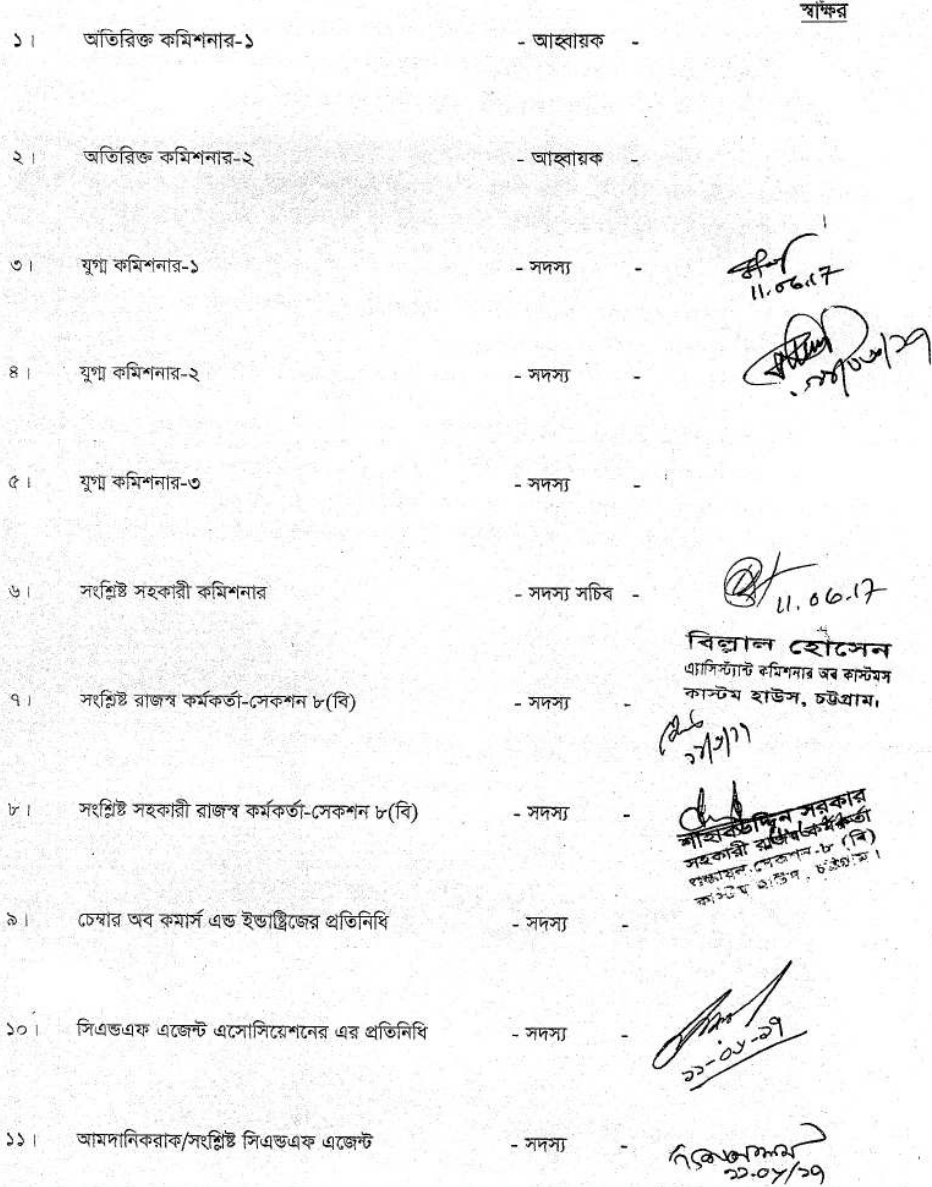 স্বাক্ষর
১। অতিরিক্ত কমিশনার-১ - আহ্বায়ক -
২। অতিরিক্ত কমিশনার-২ - আহ্বায়ক -
৩। যুগ্ম কমিশনার-১ - সদস্য -
11.06.17
৪। যুগ্ম কমিশনার-২ - সদস্য -
৫। যুগ্ম কমিশনার-৩ - সদস্য -
৬। সংশ্লিষ্ট সহকারী কমিশনার - সদস্য সচিব -
11.06.17
বিল্লাল হোসেন
এ্যাসিস্ট্যান্ট কমিশনার অব কাস্টমস
কাস্টম হাউস, চট্টগ্রাম।
৭। সংশ্লিষ্ট রাজস্ব কর্মকর্তা-সেকশন ৮(বি) - সদস্য -
৮। সংশ্লিষ্ট সহকারী রাজস্ব কর্মকর্তা-সেকশন ৮(বি) - সদস্য -
সরকার
সহকারী রাজস্ব কর্মকর্তা
সেকশন-৮ (বি)
কাস্টম হাউস, চট্টগ্রাম।
৯। চেম্বার অব কমার্স এন্ড ইন্ডাষ্ট্রিজের প্রতিনিধি - সদস্য -
১০। সিএন্ডএফ এজেন্ট এসোসিয়েশনের এর প্রতিনিধি - সদস্য -
১১-০৬-১৭
১১। আমদানিকরাক/সংশ্লিষ্ট সিএন্ডএফ এজেন্ট - সদস্য -
১১.০৬/১৭